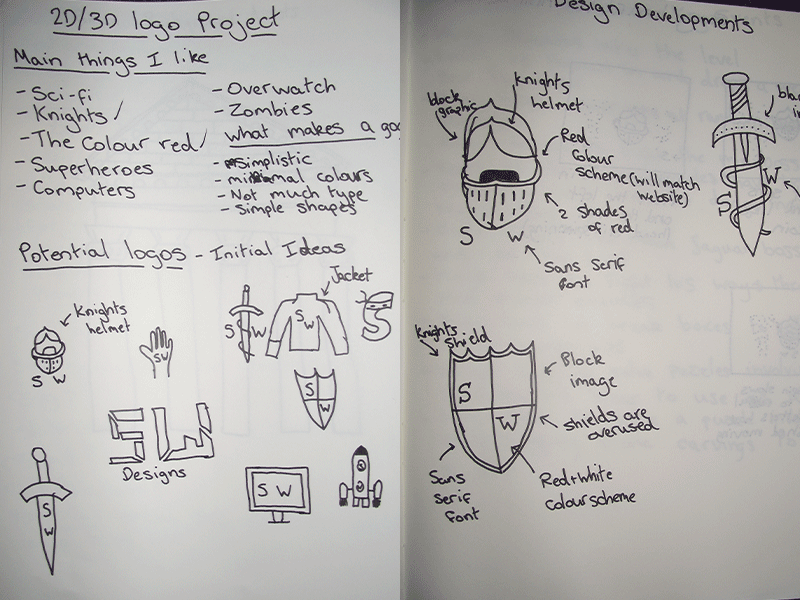 2D/3D logo Project
Main things I like
- Sci-fi
- Knights
- The Colour red
- Superheroes
- Computers
- Overwatch
- Zombies
what makes a
- simplistic
- minimal colours
- Not much type
- Simple shapes
Potential logos - Initial Ideas
Knights
helmet
S W
SW
S W
Jacket
S W
S
S
W
SW
Designs
S
W
S W
Design Developments
block
graphic
knights
helmet
Red
Colour
scheme (will match
website)
2 shades
of red
S W
Sans Serif
font
S
W
Knights
shield
S
W
Block
image
shields are
overused
Sans
Serif
font
Red+White
colourscheme